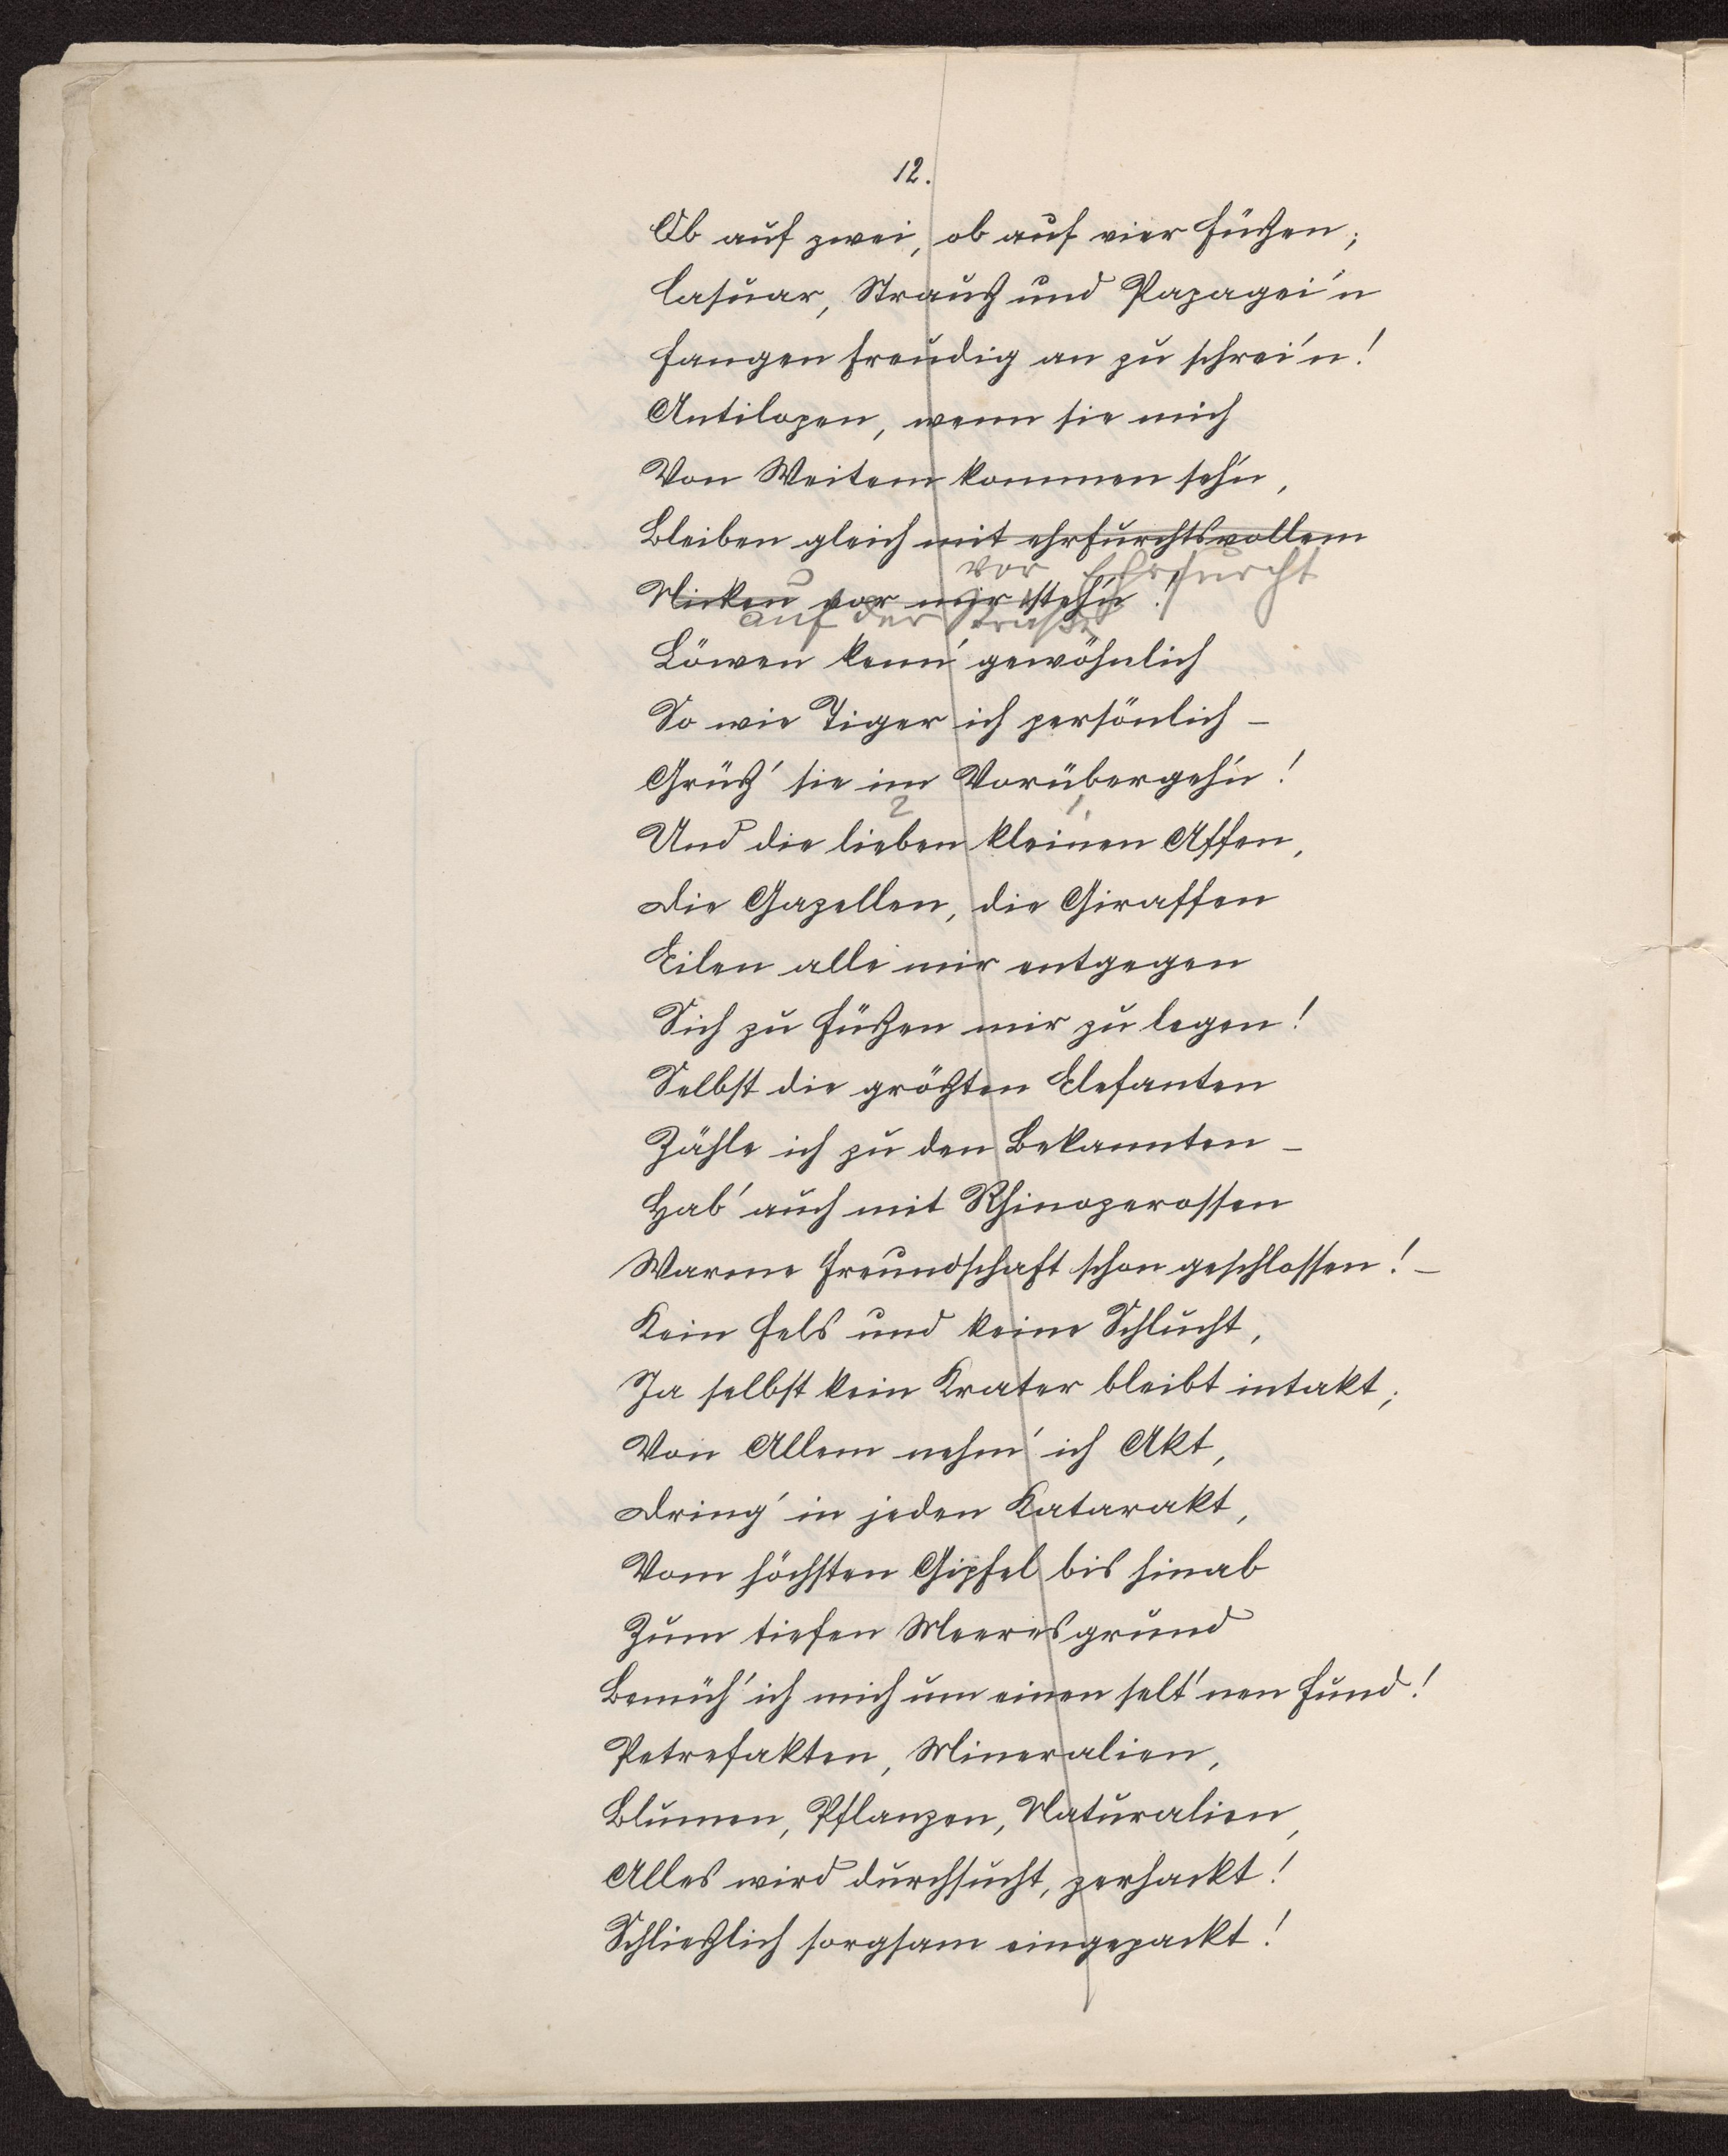 12.
Ob auf zwei, ob auf vier Füßen;
Casuar, Strauß und Papagei'n
Fangen freudig an zu schrei'n!
Antilopen, wenn sie mich
Von Weitem kommen seh'n,
Bleiben gleich mit ehrfurchtsvollem
vor Ehrfurcht
Nicken vor mir steh'n!
auf der Straße
Löwen kenn' gewöhnlich
So wie Tiger ich persönlich –
Grüß' sie im Vorübergeh'n!
2 1.
Und die lieben kleinen Affen,
Die Gazellen, die Giraffen
Eilen alle mir entgegen
Sich zu Füßen mir zu legen!
Selbst die größten Elefanten
Zähle ich zu den Bekannten –
Hab' auch mit Rhinozerossen
Warme Freundschaft schon geschlossen! –
Kein Fels und keine Schlucht,
Ja selbst kein Krater bleibt intakt;
Von Allem nehm' ich Akt,
Dring' in jeden Katarakt,
Vom höchsten Gipfel bis hinab
Zum tiefen Meeresgrund
Bemüh' ich mich um einen selt'nen Fund!
Petrefakten, Mineralien,
Blumen, Pflanzen, Naturalien,
Alles wird durchsucht, zerhackt!
Schließlich sorgsam eingepackt!